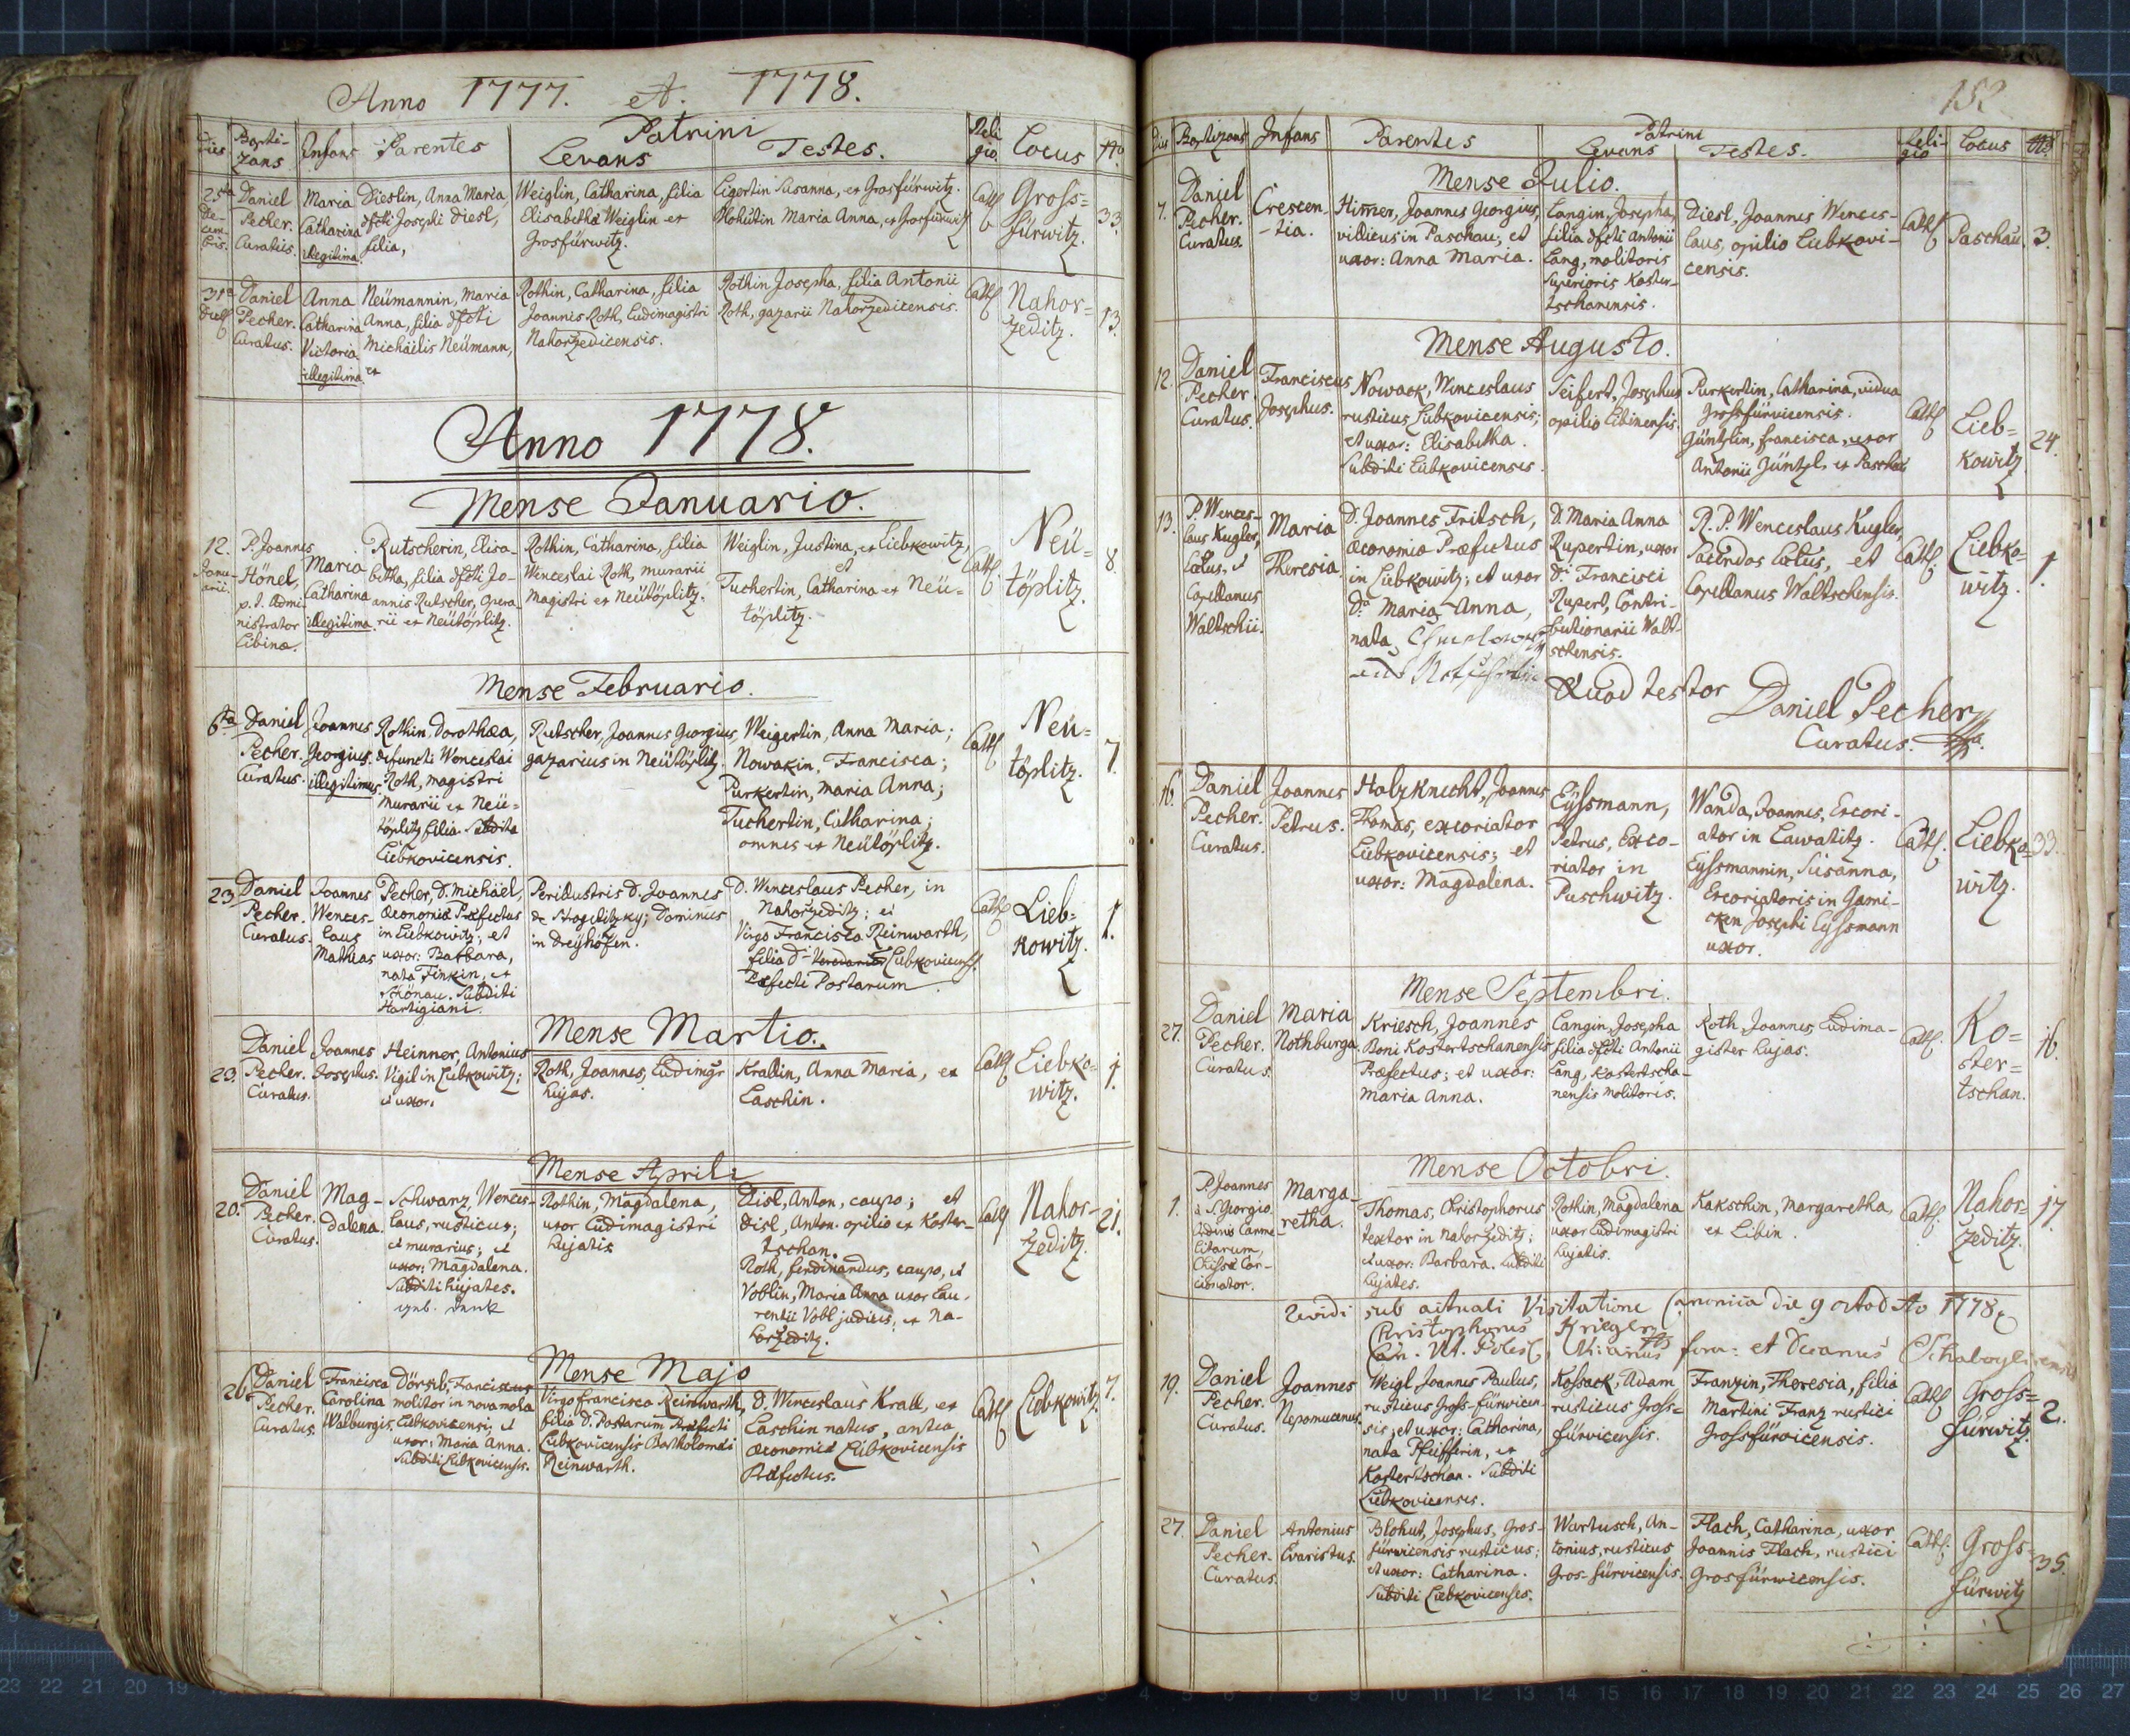 Anno 1777. et. 1778.
Dies
Bapti-
zans
Infans
Parentes
Patrini
Levans
Testes.
Reli
gio.
Locus
No
25ta
De-
cem-
bris.
Daniel
Pecher.
Curatus.
Maria
Catharina
illegitima.
Dieslin, Anna Maria,
dfcti Josephi Diesl,
filia,
Weiglin, Catharina, filia
Elisabetha Weiglin ex
Grosfürwitz.
Eigertin Susanna, ex Grosfürwitz.
Blohütin Maria Anna, ex Grosfürwitz
Cath
Gross=
fürwitz.
33.
31a
Daniel
Pecher.
Curatus.
Anna
Catharina
Victoria
illegitima.
Neümannin, Maria
Anna, filia dfcti
Michäelis Neümann,
ex
Rothin, Catharina, filia
Joannis Roth, Ludimagistri
Nahorzedicensis.
Rothin Josepha, filia Antonii
Roth, gazarii Nahorzedicensis.
Cath
Nahor=
zeditz.
13.
Anno 1778.
Mense Januario.
12.
Janu-
arii.
P. Joannes
Hönel,
p. t. Admi-
nistrator
Libinæ.
Maria
Catharina
illegitima.
Rutscherin, Elisa-
betha, filia dfcti Jo-
annis Rutscher, Opera-
rii ex Neütöplitz.
Rothin, Catharina, filia
Wenceslai Roth, murarii
magistri ex Neütöplitz.
Weiglin, Justina, ex Liebkowitz,
et
Tuchertin, Catharina ex Neü-
töplitz.
Cath.
Neü=
töplitz.
8.
Mense Februario.
6ta
Daniel
Pecher.
Curatus.
Joannes
Georgius.
illegitimus.
Rothin, Dorothæa,
defuncti Wenceslai
Roth, magistri
murarii ex Neü=
töplitz filia. Subdita
Liebkovicensis.
Rutscher, Joannes Georgius,
gazarius in Neütöplitz.
Weigertin, Anna Maria;
Nowakin, Francisca;
Purkertin, Maria Anna;
Tuchertin, Catharina;
omnes ex Neütöplitz.
Cath
Neü=
töplitz.
7.
23.
Daniel
Pecher.
Curatus.
Joannes
Wences-
laus
Mathias
Pecher, D. Michäel,
Œconomiæ Præfectus
in Liebkowitz; et
uxor: Barbara,
nata Finkin, ex
Schönau. Subditi
Hartigiani.
Perillustris D. Joannes
de Strogelitzky; Dominus
in Dreyhöfen.
D. Wenceslaus Pecher, in
Nahorzeditz; et
Virgo Francisca Reinwarth,
filia Di Liebkovicens.
Præfecti Postarum
Cath
Lieb=
kowitz.
1.
Mense Martio.
23.
Daniel
Pecher.
Curatus.
Joannes
Josephus.
Heinner, Antonius
Vigil in Liebkowitz;
et uxor:
Roth, Joannes, Ludimgr
hujas.
Krallin, Anna Maria, ex
Laschin.
Cath
Liebko-
witz.
1.
Mense Aprili
20.
Daniel
Pecher.
Curatus.
Mag-
dalena.
Schwarz, Wences-
laus, rusticus;
et murarius; et
uxor: Magdalena.
Subditi hujates.
Rothin, Magdalena,
uxor Ludimagistri
hujatis
Disl, Anton, caupo; et
Disl, Anton. opilio ex Koster-
tschan.
Roth, ferdinandus, caupo, et
Voblin, Maria Anna uxor Lau-
rentii Vobl judicis, ex Na-
horzeditz.
Cath
Nahor-
zeditz.
21.
Mense Majo
26.
Daniel
Pecher.
Curatus.
Francisca
Carolina
Walburgis.
Dörsch, Franciscus
molitor in nova mola
Liebkovicensi, et
uxor: Maria Anna.
Subditi Liebkovicenses.
Virgo Francisca Reinwarth,
filia D. Postarum Præfecti
Liebkovicensis Bartholomæi
Reinwarth.
D. Wenceslaus Krall, ex
Laschin natus, antea
œconomiæ Liebkovicensis
Præfectus.
Cath
Liebkowitz.
7.
152
Dies
Baptizans
Infans
Parentes
Patrini
Levans
Testes.
Reli-
gio
Locus
No
Mense Julio.
7.
Daniel
Pecher.
Curatus.
Crescen-
-tia.
Himer, Joannes Georgius,
villicus in Paschau; et
uxor: Anna Maria.
Langin, Josepha,
filia dfcti Antonii
Lang, molitoris
Superioris Koster-
tschanensis.
Diesl, Joannes Wences-
laus, opilio Liebkovi-
censis.
Cath
Paschau.
3.
Mense Augusto.
12.
Daniel
Pecher
Curatus.
Franciscus
Josephus.
Nowack, Wenceslaus
rusticus Liebkovicensis;
et uxor: Elisabetha.
Subditi Liebkovicenses.
Seifert, Josephus
opilio Libinensis.
Purkertin, Catharina, vidua
Grossfürvicensis.
Güntzlin, francisca, uxor
Antonii Güntzl, ex Paschau
Cath
Lieb=
kowitz
24.
13.
P. Wences-
laus Kugler,
Loctus, et
Capellanus
Waltschii.
Maria
Theresia.
D. Joannes Fritsch,
œconomiæ Præfectus
in Liebkowitz; et uxor
Da Maria Anna,
nata
D. Maria Anna
Rupertin, uxor
Di Francisci
Rupert, Contri-
butionarii Walt-
schensis.
R. P. Wenceslaus Kugler,
Sacerdos Loctus, et
Capellanus Waltschensis.
Cath.
Liebko-
witz.
1.
Quod testor Daniel Pecher
Curatus.
16.
Daniel
Pecher.
Curatus.
Joannes
Petrus.
Holzknecht, Joannes
Thomas, excoriator
Liebkovicensis; et
uxor: Magdalena.
Eyssmann,
Petrus, Exco-
riator in
Puschwitz.
Wanda, Joannes, Excori-
ator in Lawatitz.
Eyssmannin, Susanna,
Excoriatoris in Jami-
cken Josephi Eyssmann
uxor.
Cath.
Liebko-
witz.
33.
Mense Septembri.
27.
Daniel
Pecher.
Curatus
Maria
Nothburga.
Kriesch, Joannes
Boni Kostertschanensis
Præfectus; et uxor:
Maria Anna.
Langin, Josepha
filia dfcti Antonii
Lang, Kostertscha-
nensis Molitoris.
Roth, Joannes, Ludima-
gister hujas.
Cath.
Ko=
ster=
tschan.
16.
Mense Octobri.
1.
P. Joannes
à S. Georgio
Ordinis Carme-
litarum,
Chissæ Con-
cionator.
Marga-
retha.
Thomas, Christophorus
textor in Nahorzeditz;
et uxor: Barbara. Subditi
hujates.
Rothin, Magdalena
uxor Ludimagistri
hujatis.
Kakschin, Margaretha,
ex Libin.
Cath.
Nahor-
zeditz.
17.
Revidi sub actuali Visitatione Canonica die 9 1778
Christophorus Krieger
Vicarius fora: et Decanus
19.
Daniel
Pecher.
Curatus.
Joannes
Nepomucenus.
Weigl Joannes Paulus,
rusticus Gross-fürvicen-
sis, et uxor: Catharina,
nata Pfeifferin, ex
Kostertschan. Subditi
Liebkovicenses.
Kossack, Adam
rusticus Gross=
fürvicensis.
Franzin, Theresia, filia
Martini Franz rustici
Grossfürvicensis.
Cath
Gross=
fürwitz.
2.
27.
Daniel
Pecher.
Curatus.
Antonius
Evaristus.
Blohut, Josephus, Gros-
fürvicensis rusticus;
et uxor: Catharina.
Subditi Liebkovicenses.
Wartusch, An-
tonius, rusticus
Gros-fürvicensis.
Flach, Catharina, uxor
Joannis Flach, rustici
Grosfürvicensis.
Cath.
Gross-
fürwitz
35.